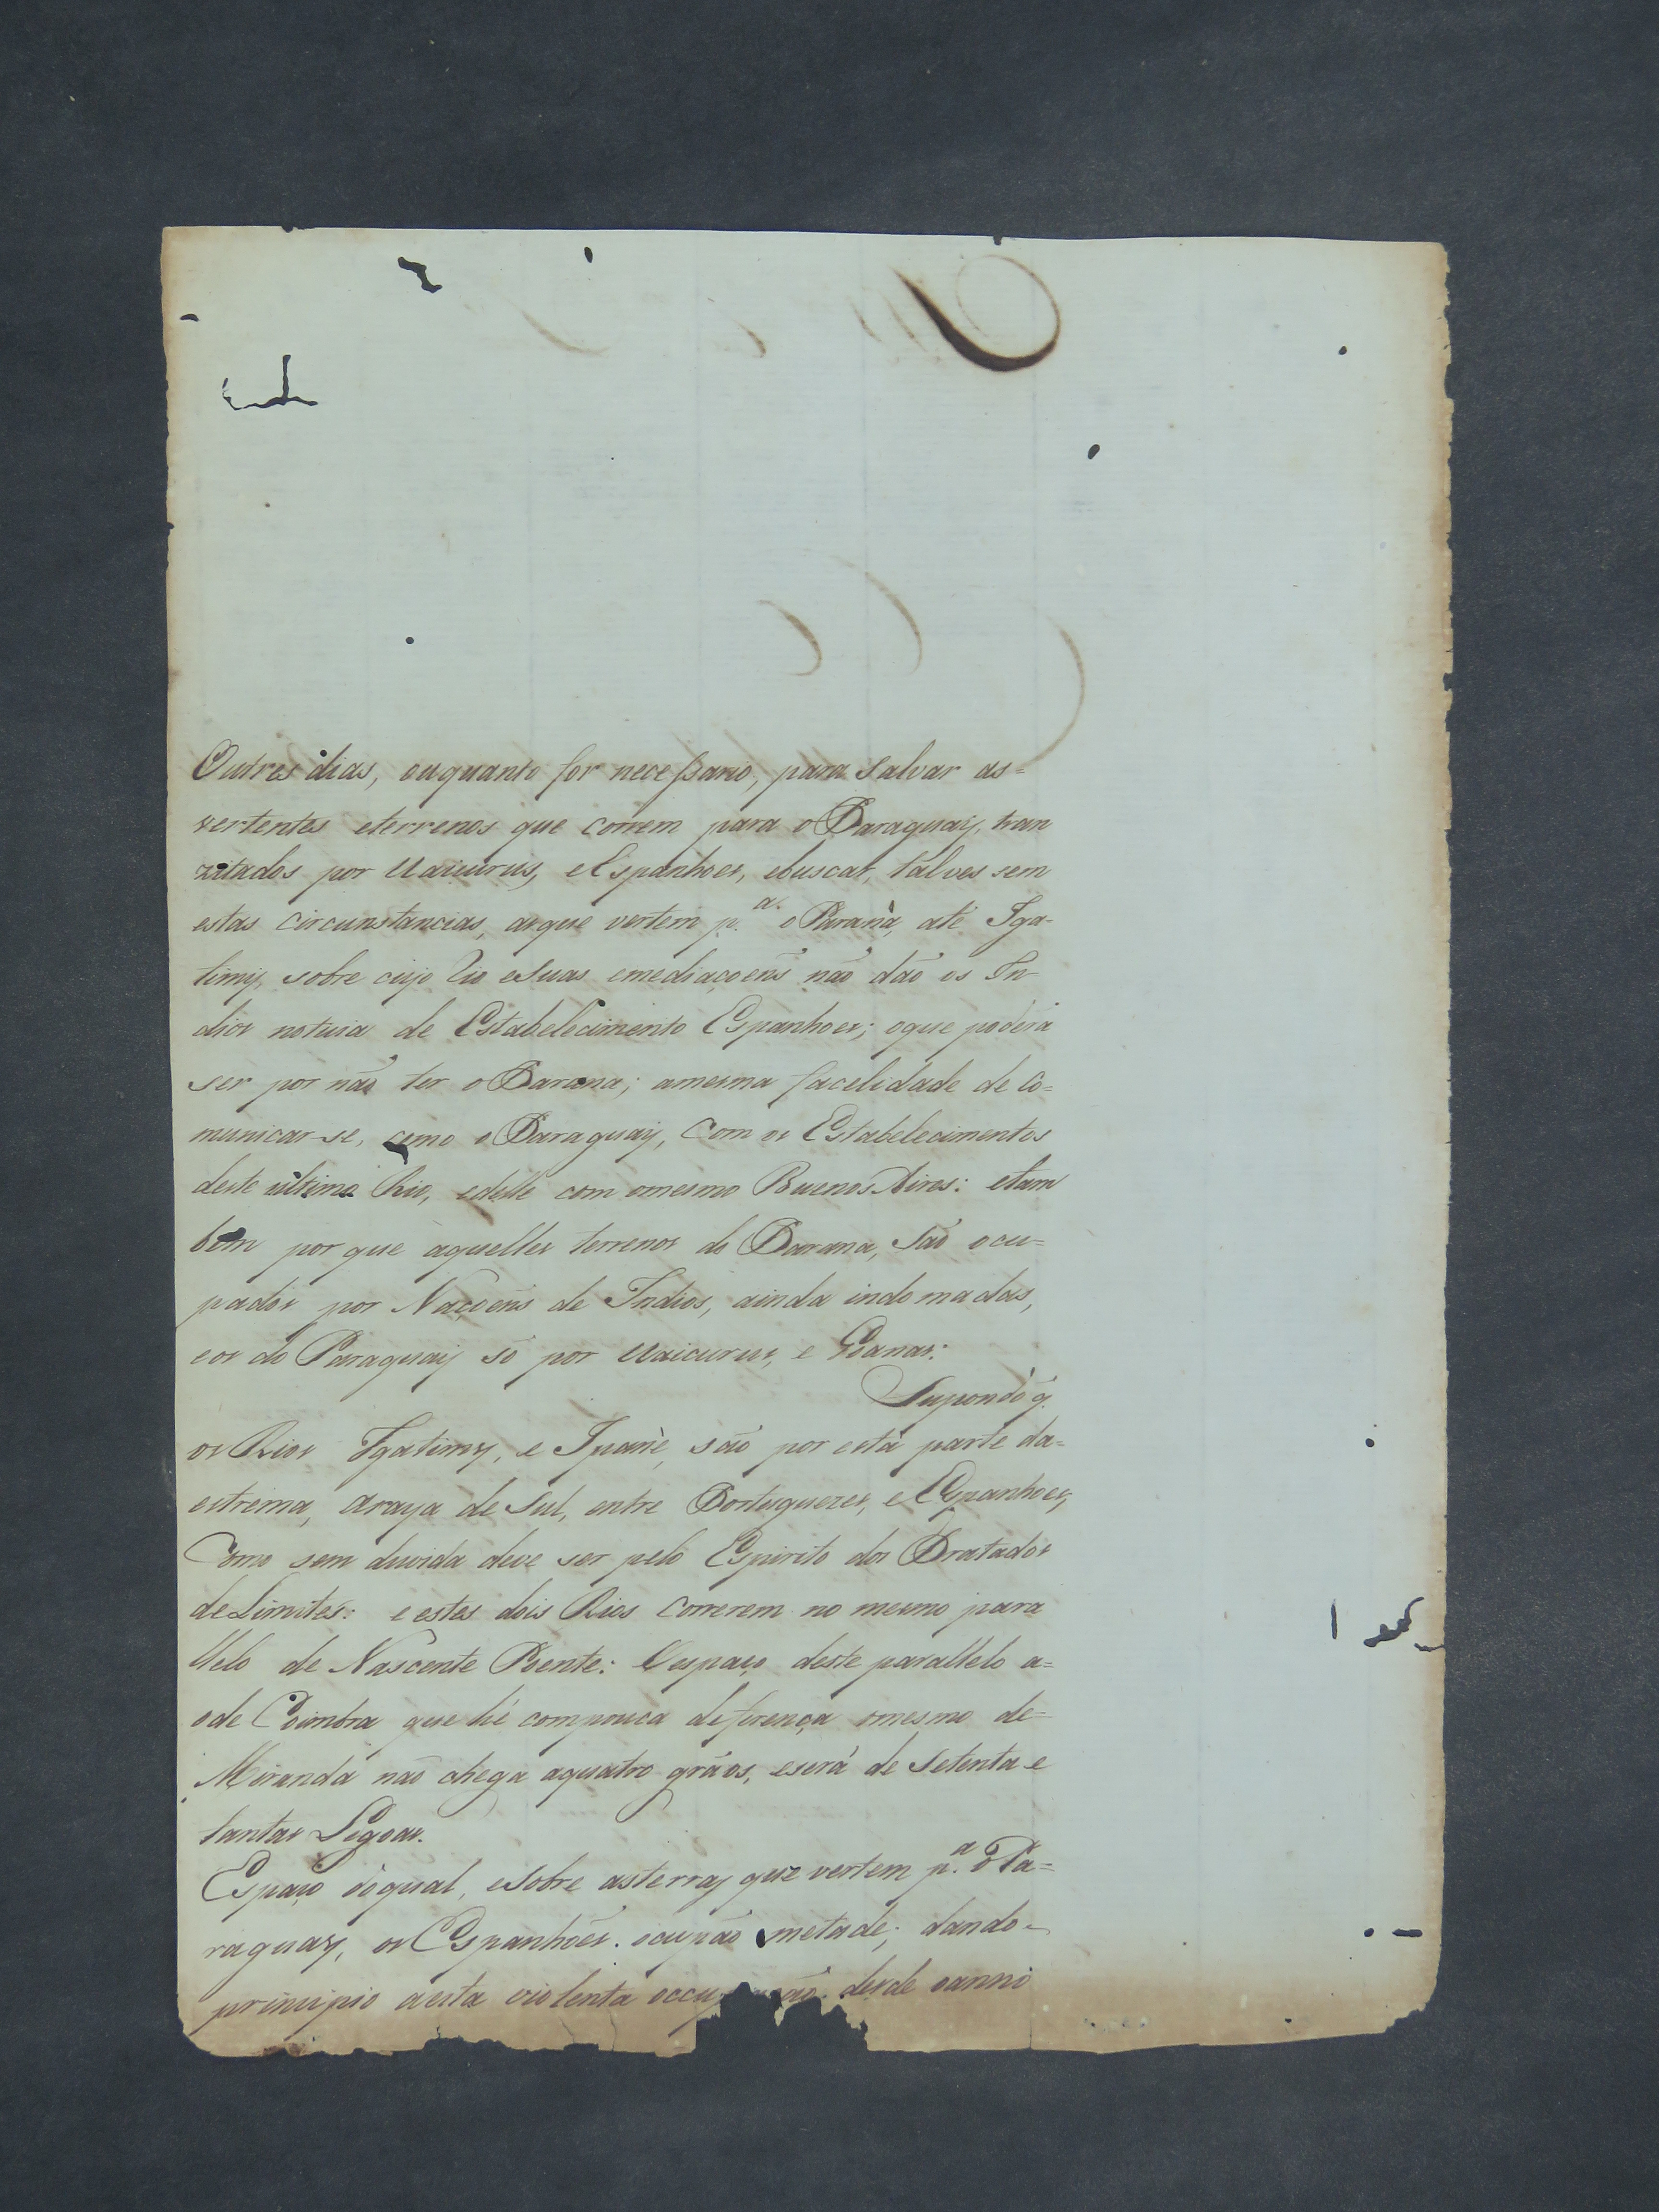 Outros dias, ouquanto for necessario, para salvar as=
vertentes eterrenos que correm para o Paraguay, tran
zitados por Uaicurus, e Espanhoes, ebuscar, talves sem
estas circunstancias, asque vertem p.ª o Paranà, até Iga-
timy, sobre cujo Rio esuas emediaçoens não dão os In-
dios noticia de Estabelecimento Espanhoes; oque poderá
ser por não ter o Parana; amesma facelidade de Co=
municar-se, como o Paraguay, Com os Estabelecimentos
deste ultimo Rio, edelle com omesmo Buenos Aires: etam
bem porque aquelles terrenos do Parana, são ocu=
pados por Naçoens de Indios, ainda indomadas,
eos do Paraguay só por Uaicurus, e Goanas:
Supondo q.
os Rios Igatimy, e Ipané, são por esta parte da=
estrema, araya de Sul, entre Portuguezes, e Espanhoes,
Como sem duvida deve ser pelo Espirito dos Tratados
deLimites: e estes dois Rios correrem no mesmo para
llelo de Nascente Poente: Oespaço deste parallelo a=
ode Coimbra que hé compouca deferença omesmo de=
Miranda não chega aquatro gráos, eserá de Setenta e
tantas Legoas.
Espaço doqual, esobre asterras que vertem p.ª o Pa=
raguay, os Espanhóes. ocupão metade; dando-
principio aesta violenta desde oanno